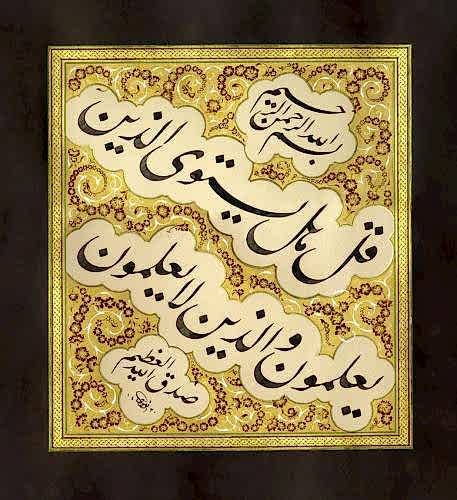 بسم الله الرحمن الرحیم
قل هل یستوی الذین
یعلمون والذین لا یعلمون
صدق الله العظیم